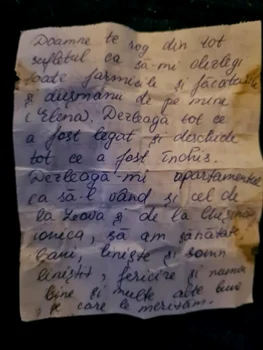 Doamne te rog din tot
sufletul ca să-mi dezlegi
toate farmicile și făcăturile
și dușmanii de pe mine
Elena. Dezleagă tot ce
a fost legat și deschide
tot ce a fost închis.
Dezleagă-mi apartamentul
ca să-l vând și cel de
la și de la
ionica, să am sănătate
bani, liniște și somn
liniștit, fericire și numai
bine și multe alte bune
pe care le merităm.